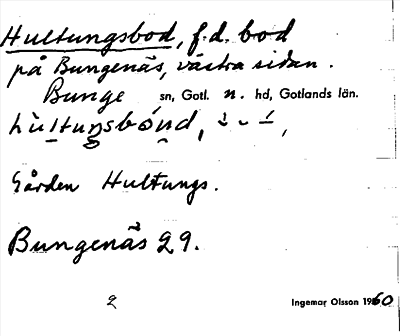 Hultungsbod, f.d. bod
på Bungenäs, västra sidan.
Bunge sn, Gotl. n. hd, Gotlands län.
Gården Hultungs.
Bungenäs 29.
2 Ingemar Olsson 1960